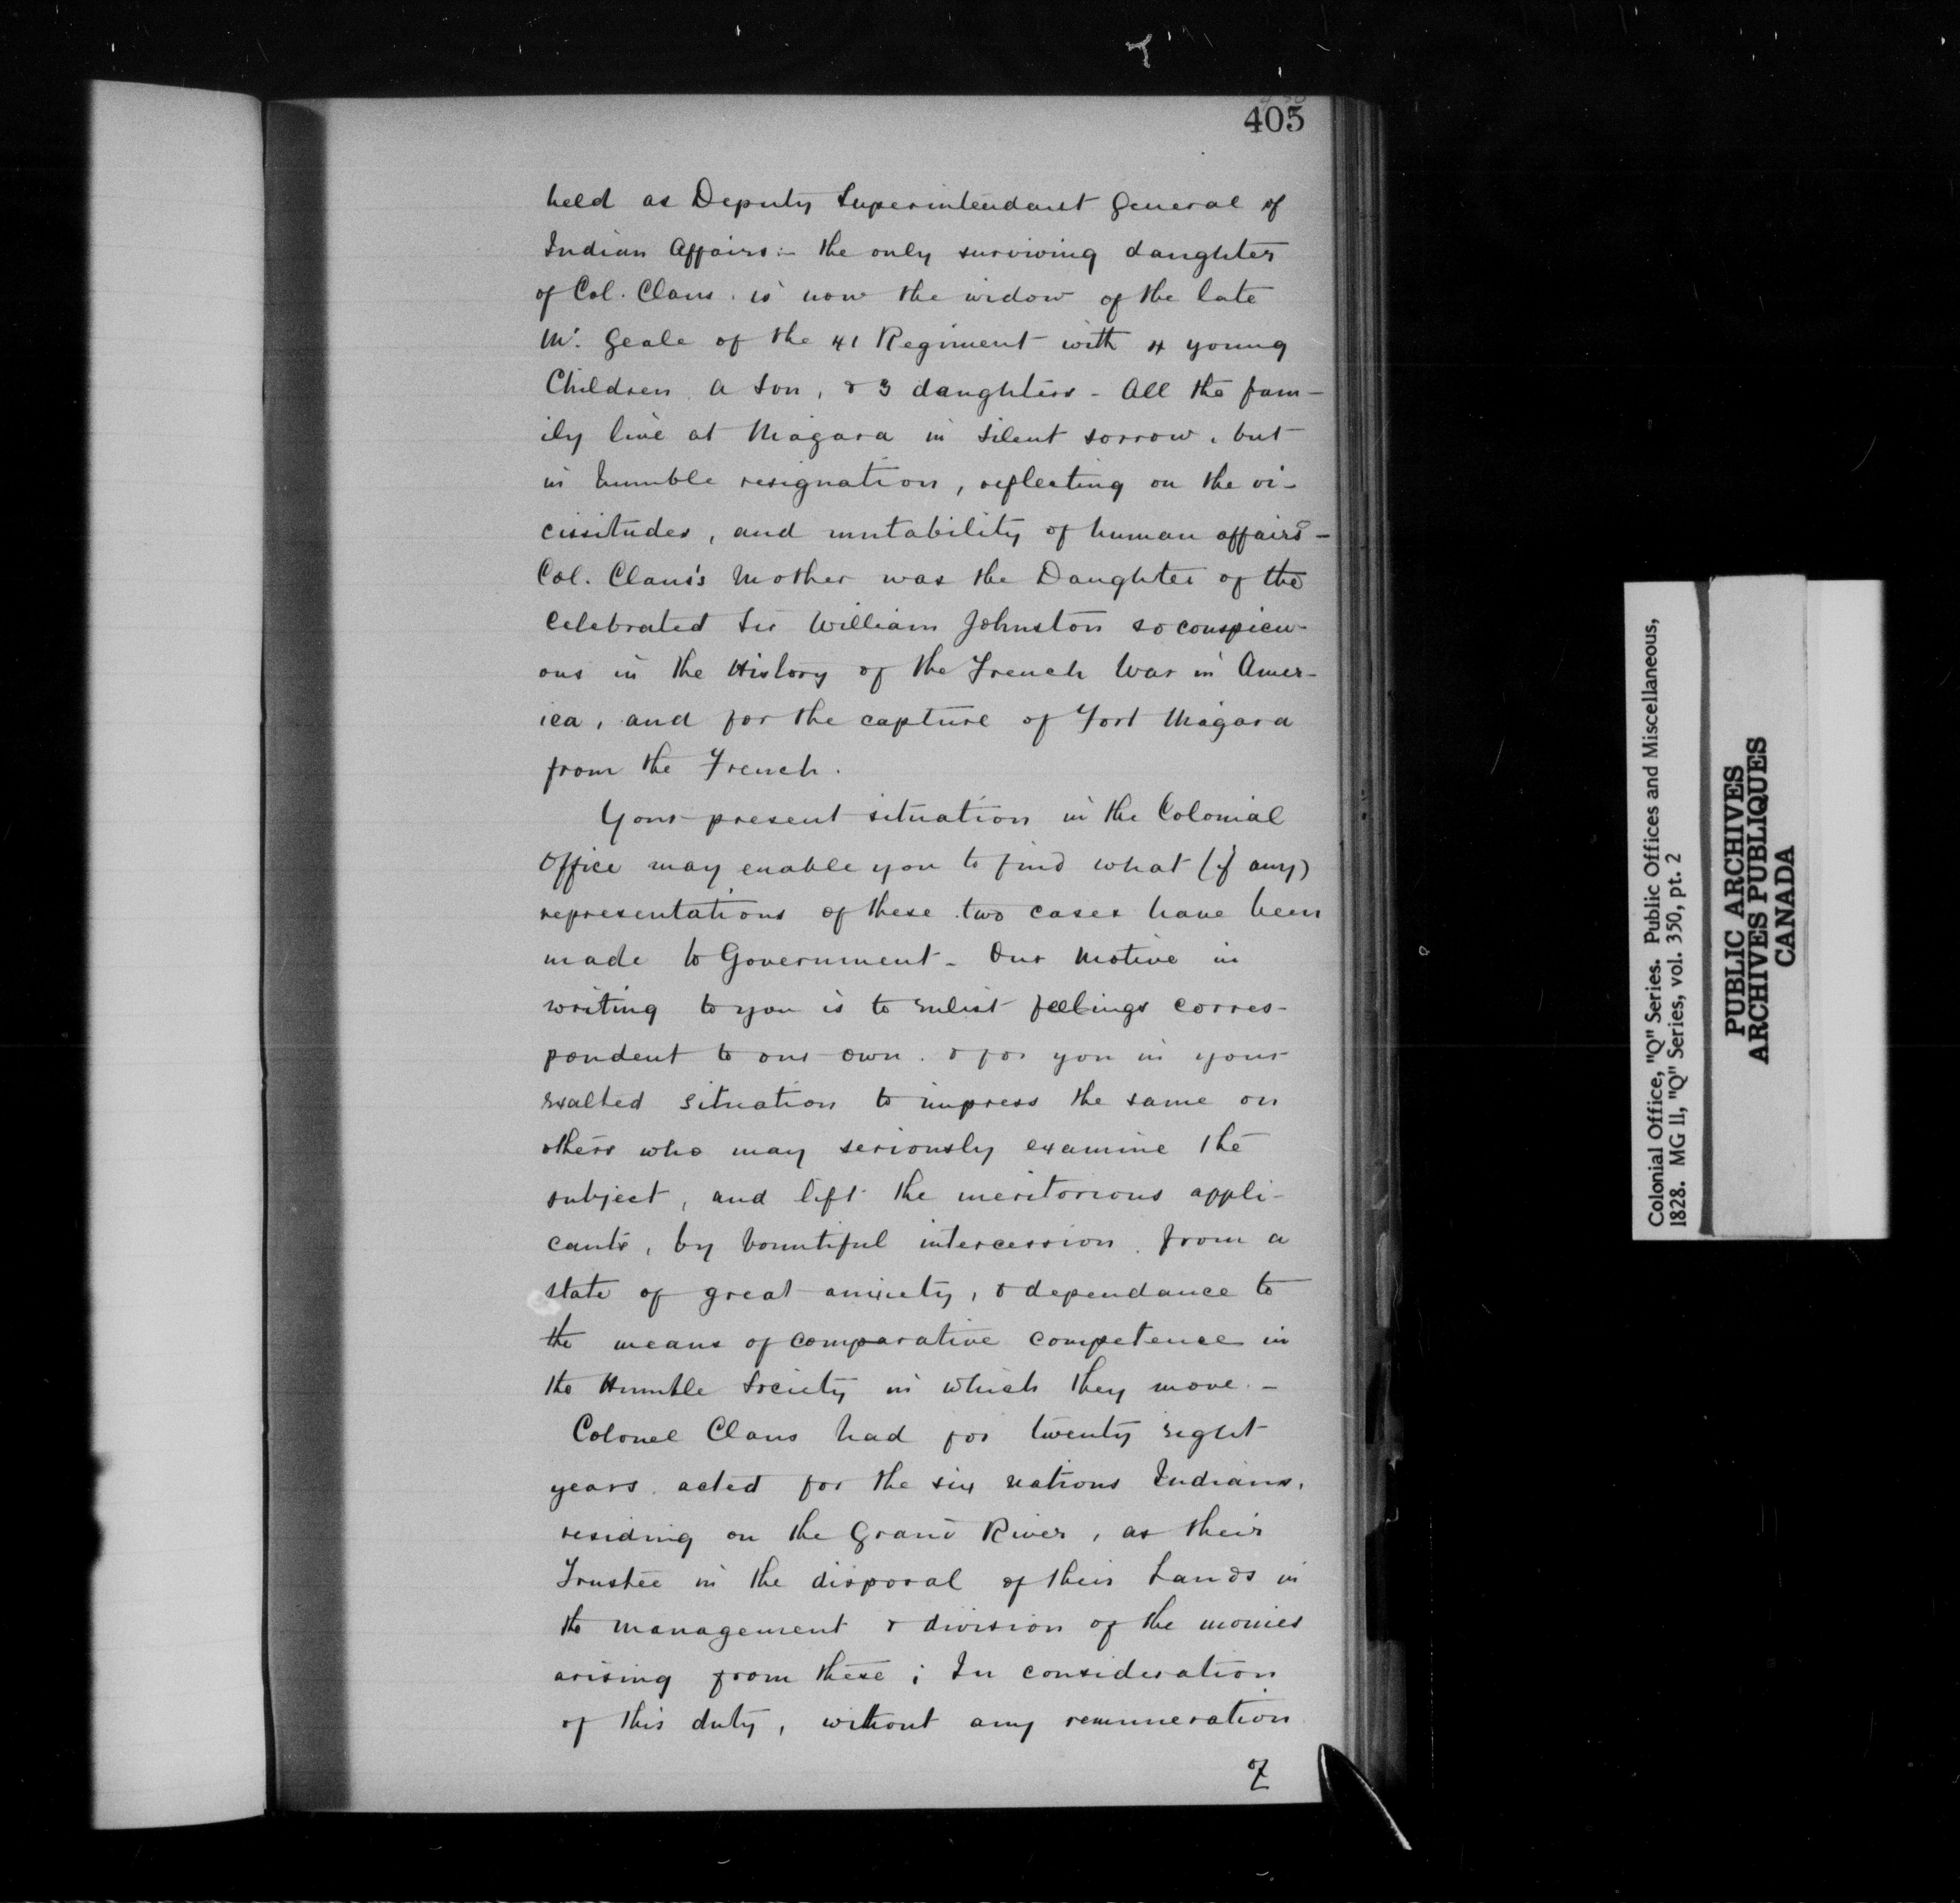 405
held as Deputy Superintendant General of
Indian Affairs:- the only surviving daughter
of Col. Claus. is now the widow of the late
Mr. Geale of the 41 Regiment with 4 young
Children. a Son, & 3 daughters - All the fam-
ily live at Niagara in silent sorrow, but
in humble resignation, reflecting on the vi-
cissitudes, and mutability of human affairs -
Col. Claus's Mother was the Daughter of the
Celebrated Sir William Johnston so conspicu-
ous in the History of the French War in Amer-
ica, and for the capture of Fort Niagara
from the French.
Your present situation in the Colonial
Office may enable you to find what (if any)
representations of these two cases have been
made to Government - Our Motive in
writing to you is to enlist feelings corres-
pondent to our own. & for you in your
exalted situation to impress the same on
others who may seriously examine the
subject, and lift the meritorious appli-
cants, by bountiful intercession. from a
state of great anxiety, & dependance to
the means of comparative competence in
the Humble Society in which they move. -
Colonel Claus had for twenty eight
years. acted for the six nations Indians,
residing on the Grand River, as their
Trustee in the disposal of their Lands in
the management & division of the monies
arising from these; In consideration
of this duty, without any remuneration
of
Colonial Office, "Q" Series. Public Offices and Miscellaneous,
1828. MG 11, "Q" Series, vol. 350, pt. 2
PUBLIC ARCHIVES
ARCHIVES PUBLIQUES
CANADA